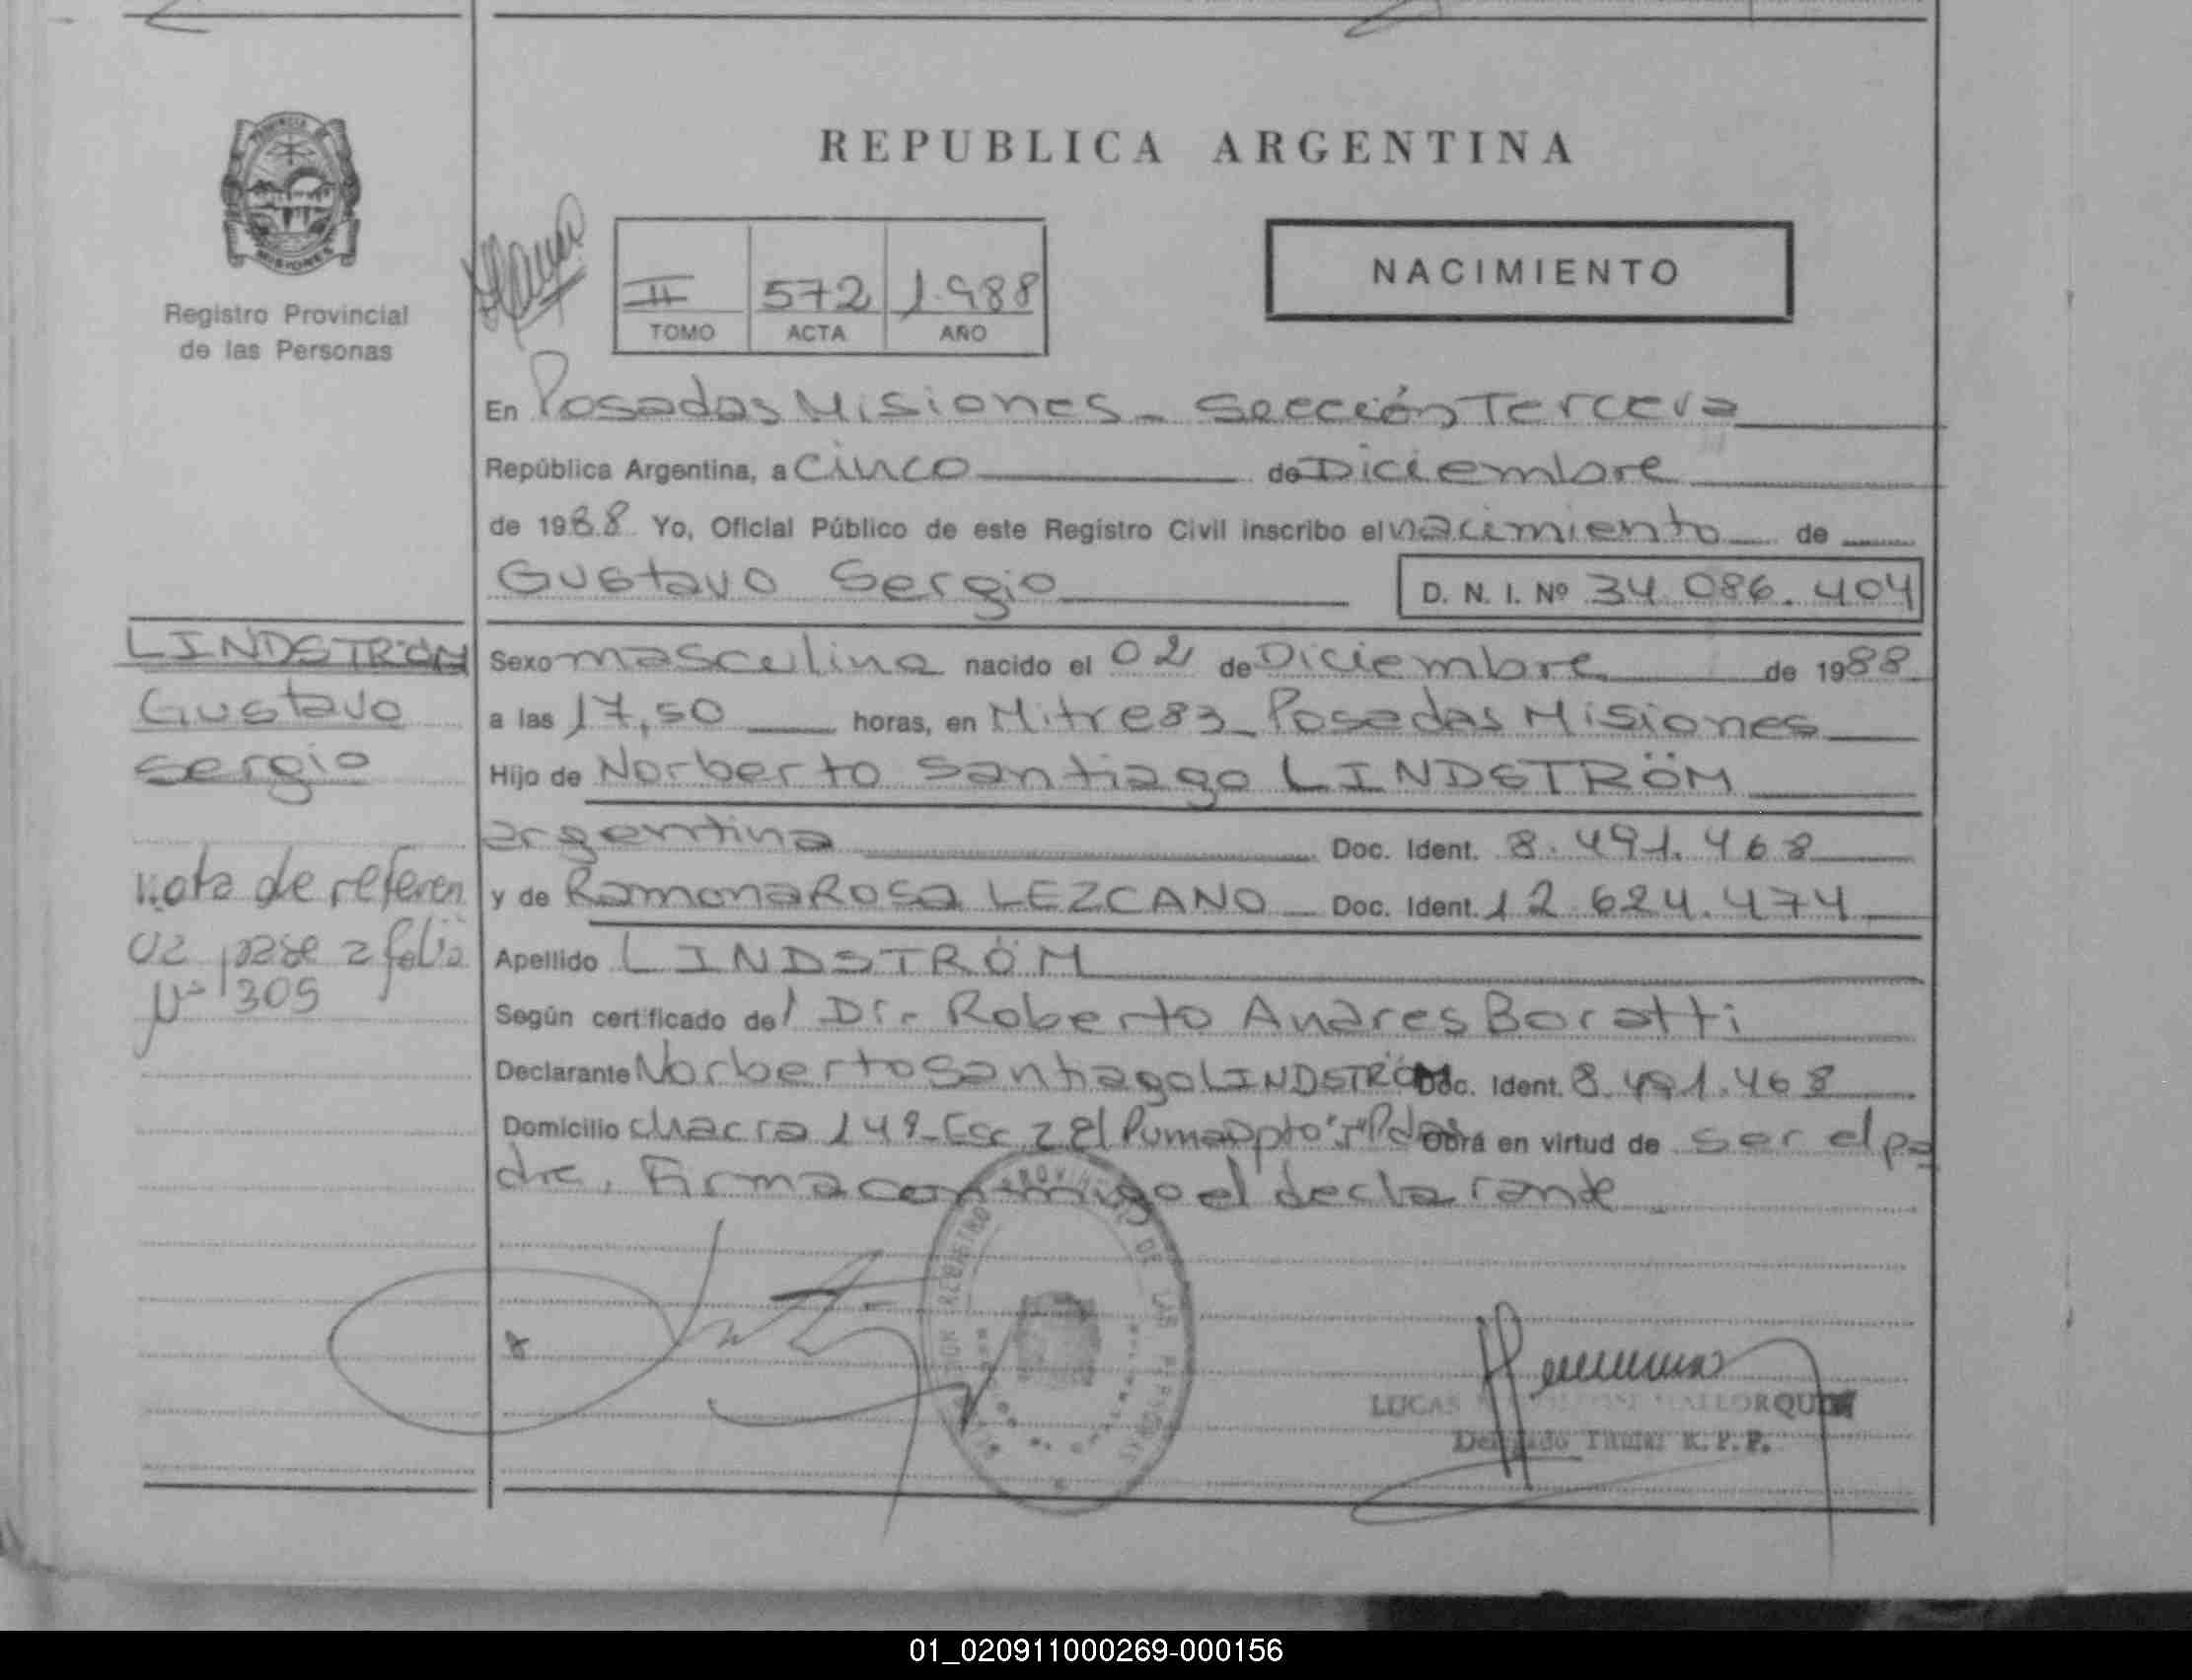 REPUBLICA ARGENTINA
PROVINCIA DE
MISIONES
Registro Provincial
de las Personas
II 572 1.988
TOMO ACTA AÑO
NACIMIENTO
En Posadas Misiones - Sección Tercera
República Argentina, a Cinco de Diciembre
de 1988 Yo, Oficial Público de este Registro Civil inscribo el nacimiento de
Gustavo Sergio D. N. I. Nº 34.086.404
LINDSTRÖM
Gustavo
Sergio
Sexo masculino nacido el 02 de Diciembre de 1988
a las 17,50 horas, en Mitre 83 - Posadas Misiones
Hijo de Norberto Santiago LINDSTRÖM
argentina Doc. Ident. 8.491.468
y de Ramona Rosa LEZCANO - Doc. Ident. 12.624.474
nota de referen
pase a folio
Nº 305
Apellido LINDSTRÖM
Según certificado del Dr. Roberto Andres Boratti
Declarante Norberto Santiago LINDSTRÖM Doc. Ident. 8.491.468
Domicilio chacra 149 - Esc 2 El Puma Dpto Pdas Obra en virtud de ser el pa
dre. Firma conmigo el declarante
REGISTRO PROVINCIAL DE LAS PERSONAS
LUCAS MALLORQUIN
Delegado Titular R. P. P.
01_020911000269-000156